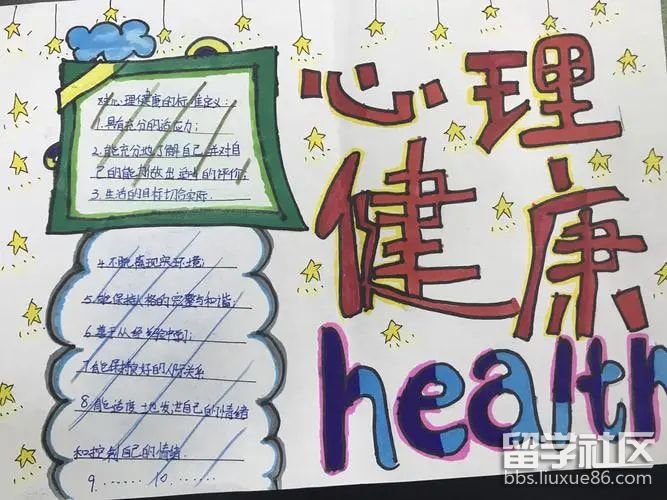 对心理健康的标准定义:
1.具有充分的适应力;
2.能充分地了解自己,并对自
己的能力做出适当的评价;
3.生活的目标切合实际
4.不脱离现实环境;
5.能保持人格的完整与和谐;
6.善于从经验中学习;
7.能保持良好的人际关系
8.能适度地发泄自己的情绪
和控制自己的情绪
9....... 10.......
心理
健康
health
留学社区
bbs.liuxue86.com